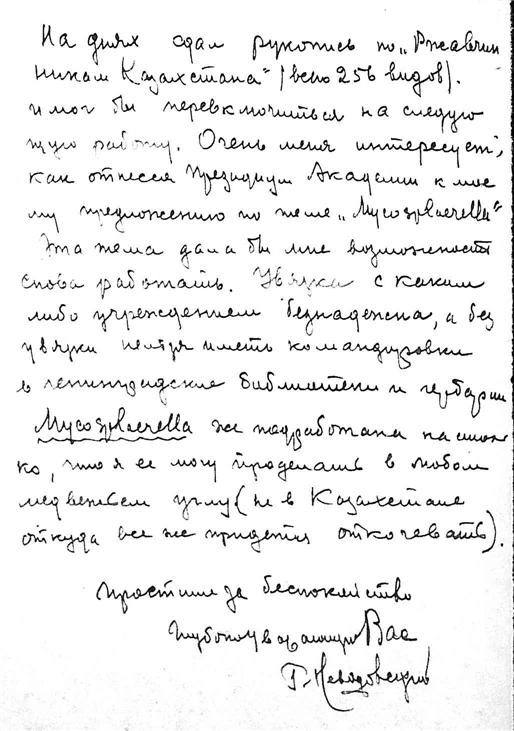 На днях сдал рукопись по „Ржавчин
никам Казахстана“ (всего 256 видов).
и мог бы переключиться на следую
щую работу. Очень меня интересует,
как отнесся Президиум Академии к мое
му предложению по теме „Mycosphaerella“
Эта тема дала бы мне возможность
снова работать. Увязка с каким
либо учреждением безнадежна, а без
увязки нельзя иметь командировки
в ленинградские библиотеки и гербарии
Mycosphaerella же подработана настоль
ко, что я ее могу проделать в любом
медвежьем углу (не в Казахстане
откуда все же придется откочевать).
Простите за беспокойство
Глубокоуважающий Вас
Г. Неводовский